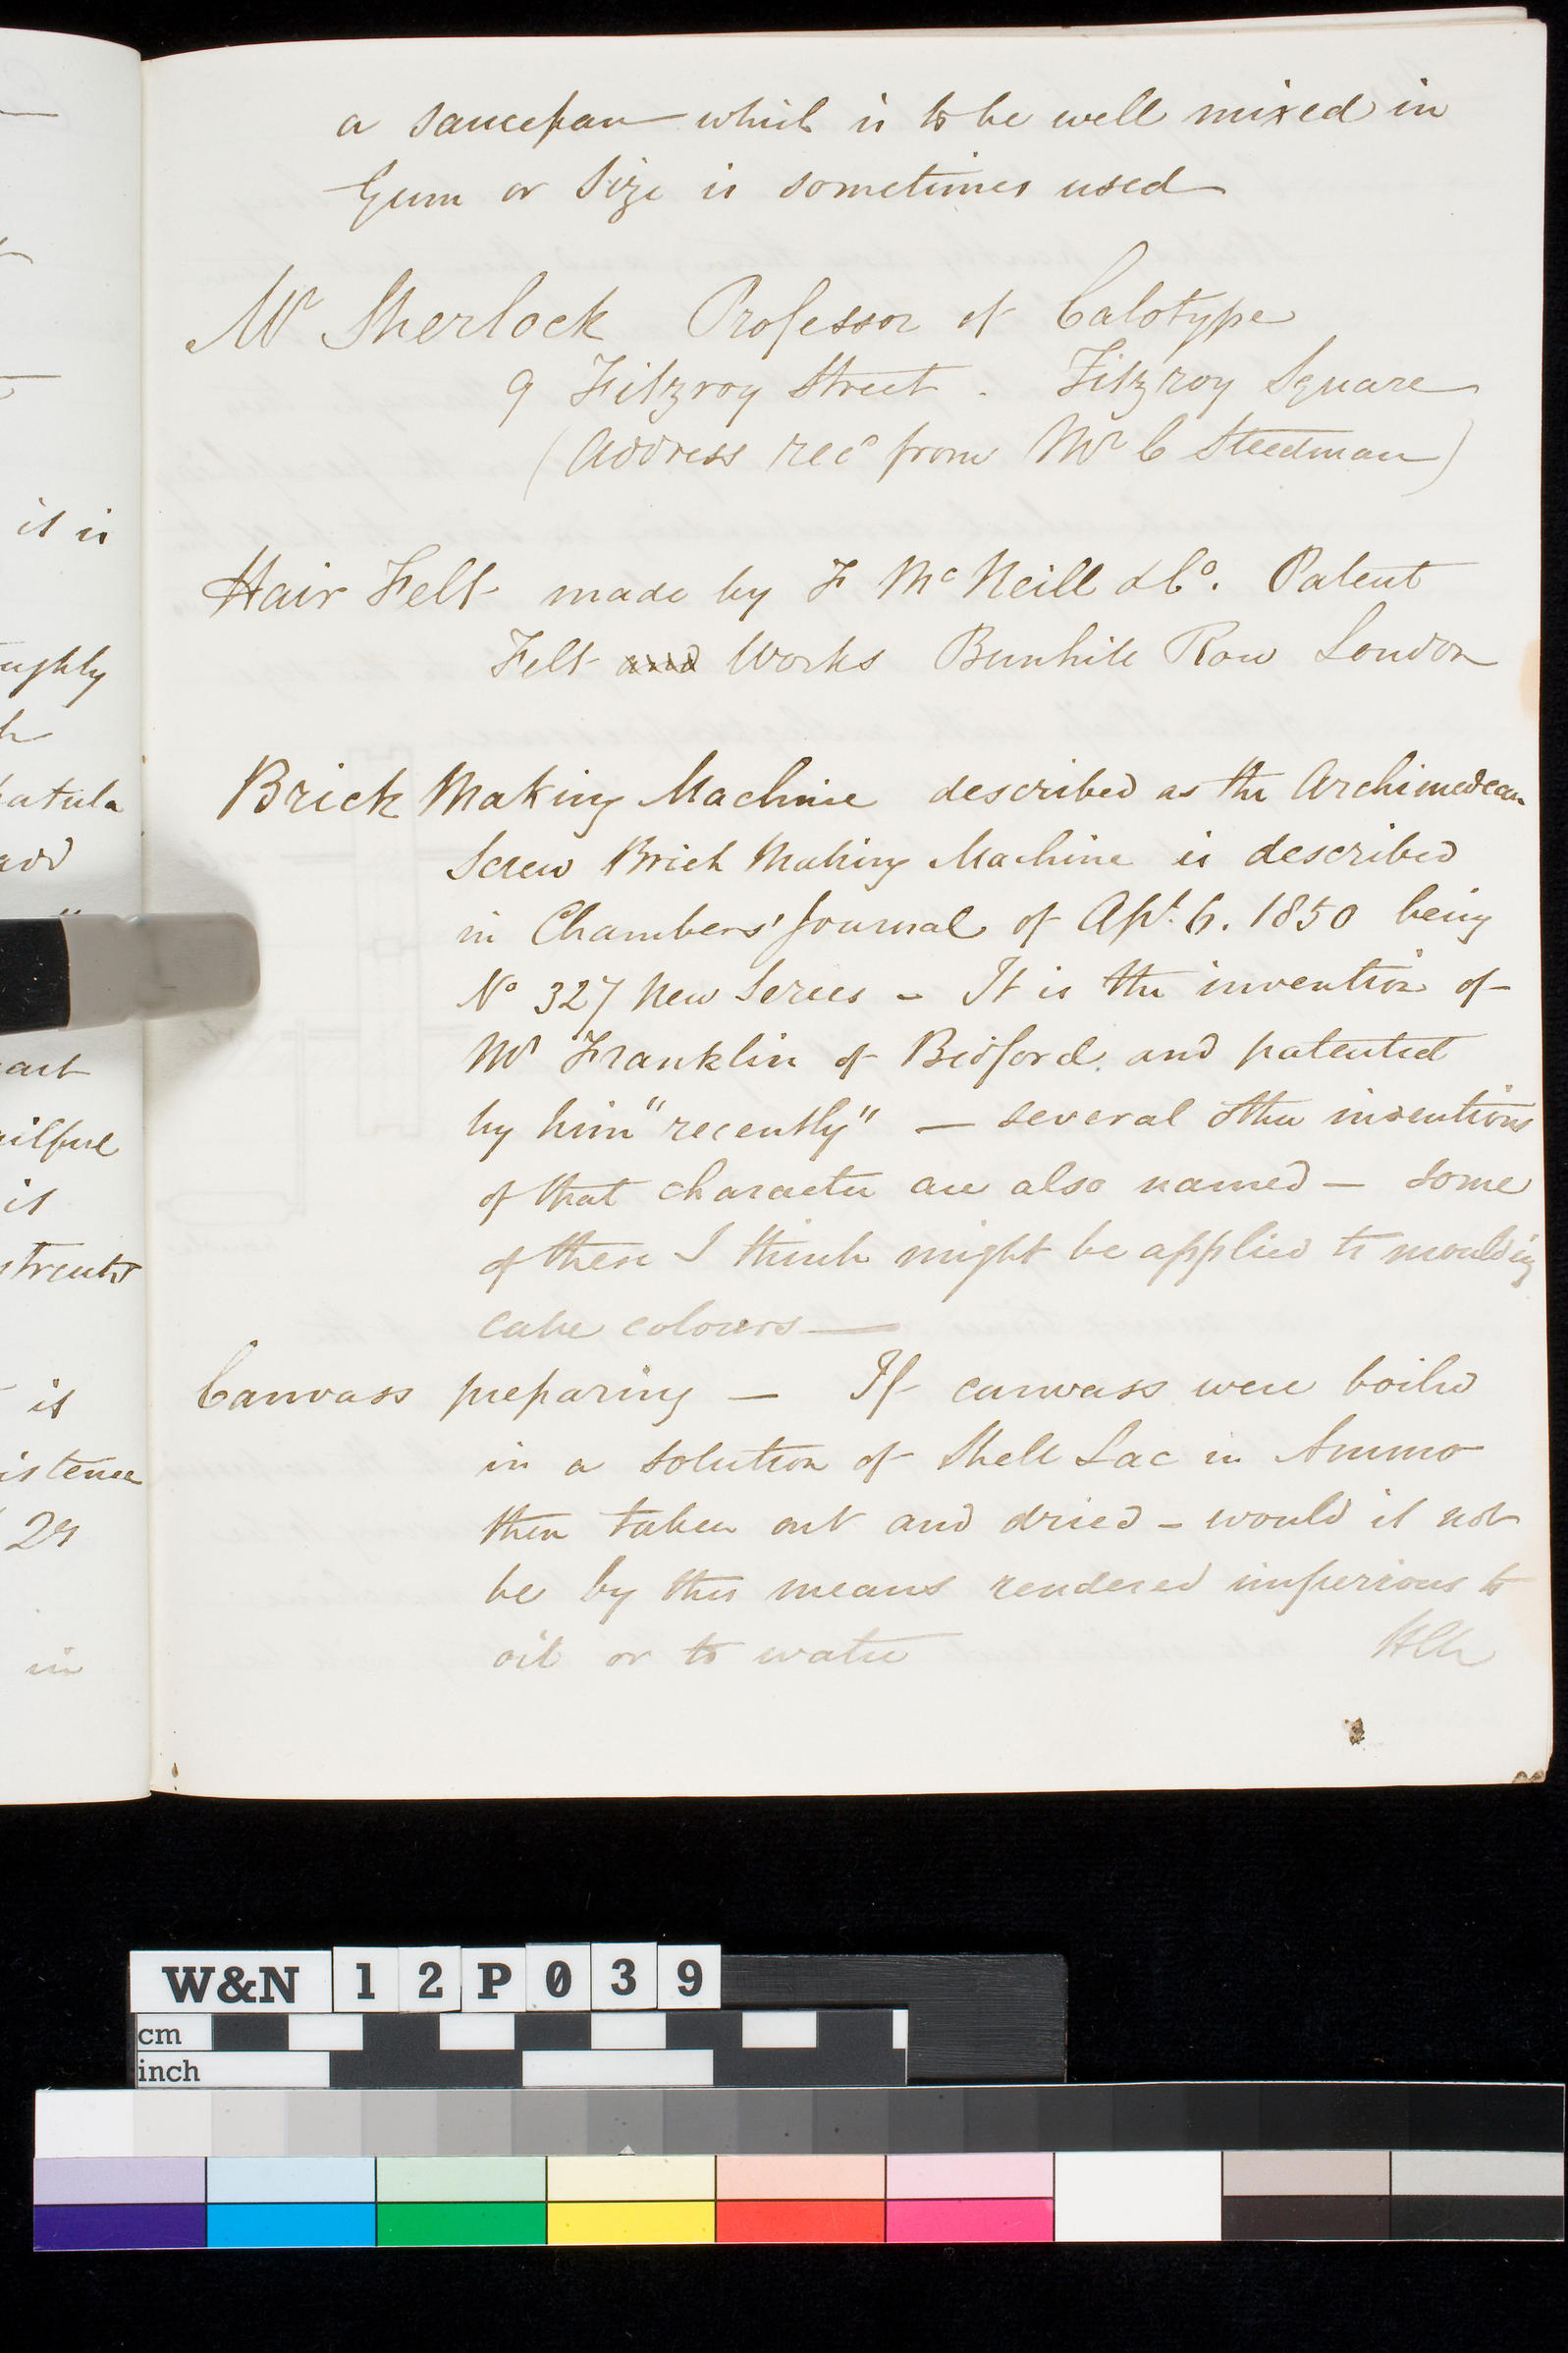 a saucepan which is to be well mixed in
Gum or Size is sometimes used
Mr Sherlock Professor of Calotype
9 Fitzroy Street . Fitzroy Square
(Address recd from Mr C Steedman)
Hair Felt made by F McNeill & Co. Patent
Felt and Works Bunhill Row London
Brick Making Machine described as the Archimedean
Screw Brick Making Machine is described
in Chambers' Journal of Apl. 6. 1850 being
No 327 New Series - It is the invention of
Mr Franklin of Bedford and patented
by him "recently" — several other inventions
of that character are also named — some
of these I think might be applied to moulding
cake colours —
Canvass preparing — If canvass were boiled
in a solution of Shell Lac in Ammo
then taken out and dried - would it not
be by this means rendered impervious to
oil or to water
it is
ughly
atula
add
"
it
is
in
W&N 12P039
cm
inch